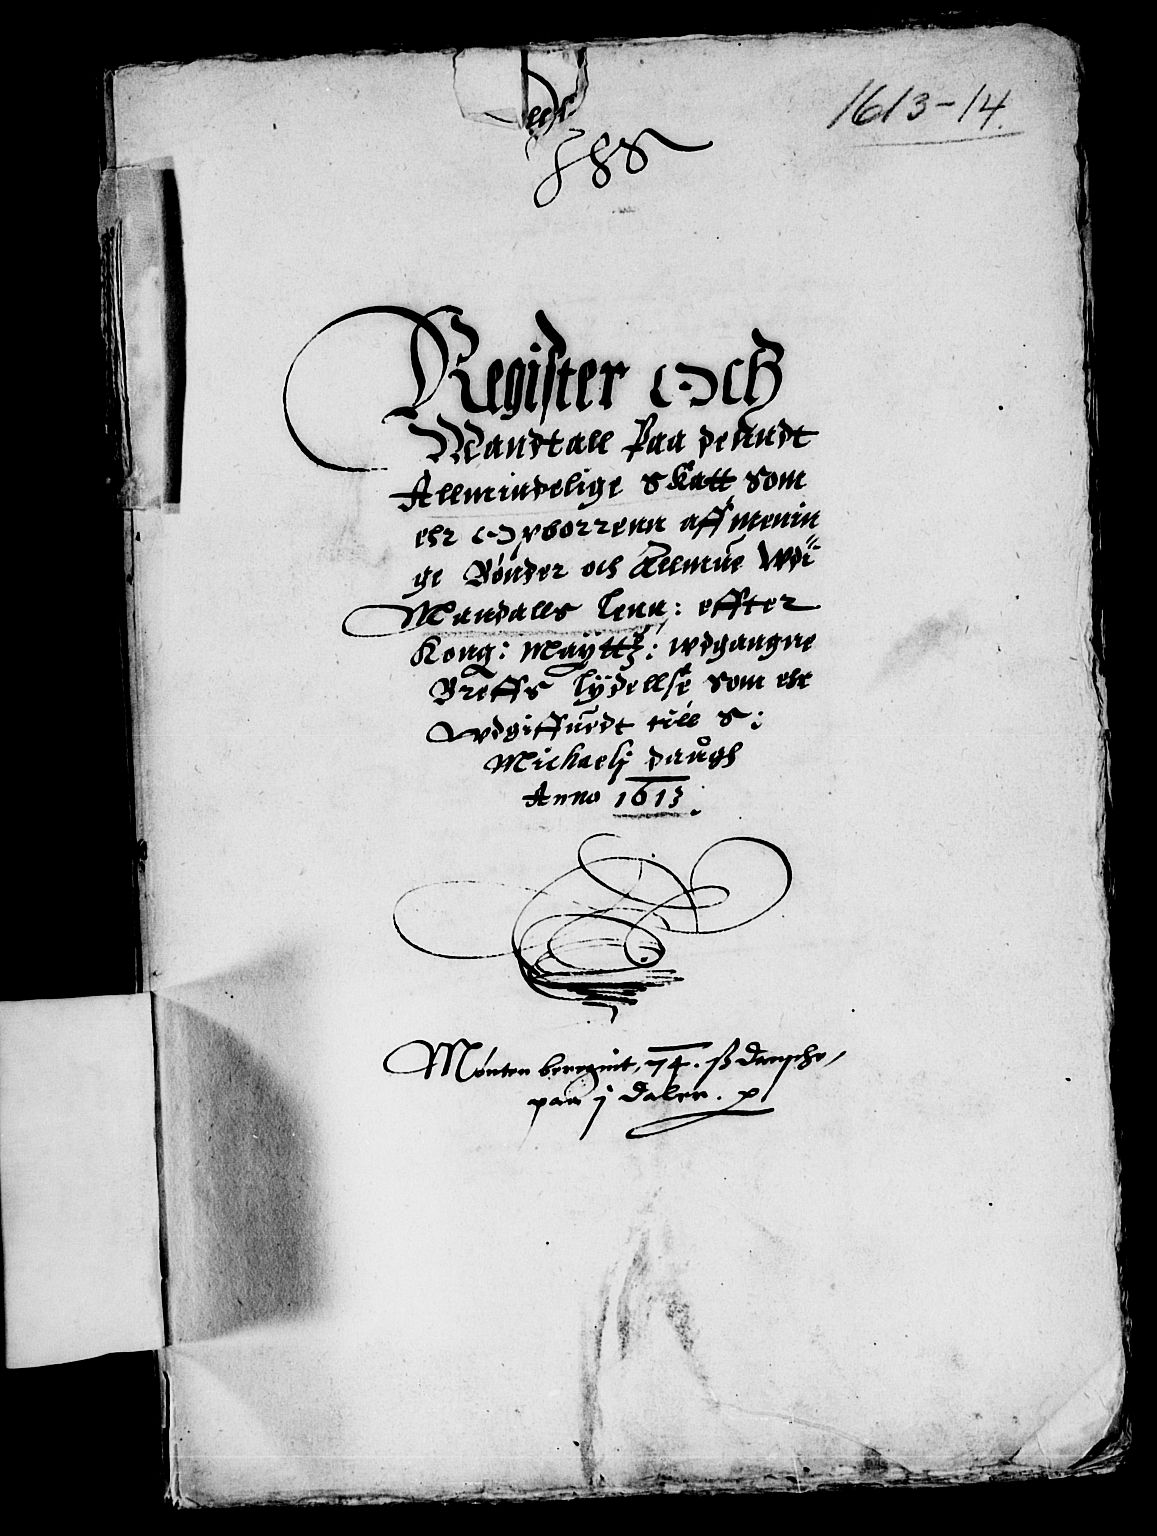 1613-14.
Register Och
Mandtall Paa denndt
Allmindelige Skatt Som
ehr Opborrenn aff menin
ge Bønder och Allmue Wdi
Mandalls Lenn: effter
Kong: Maÿttz: wdgangne
Breffs lÿdellse som ehr
Wdgiffuedt till S:
Michaelj daugh
Anno 1613.
Mønten beregnit, 74. ß dansche,
paa j daler.